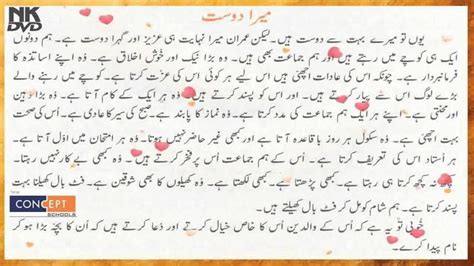 NK
DVD
میرا دوست
یوں تو میرے بہت سے دوست ہیں۔ لیکن عمران میرا نہایت ہی عزیز اور گہرا دوست ہے۔ ہم دونوں
ایک ہی کوچے میں رہتے ہیں اور ہم جماعت بھی ہیں۔ وہ بڑا نیک اور خوش اخلاق ہے۔ وہ اپنے اساتذہ کا
فرمانبردار ہے۔ چونکہ اُس کی عادات اچھی ہیں اس لیے ہر کوئی اس کی عزت کرتا ہے۔ کوچے میں رہنے والے
بڑے لوگ اس سے پیار کرتے ہیں۔ اور اس کو پسند کرتے ہیں۔ وہ ہر ایک کے کام آتا ہے۔ وہ بڑا
محنتی ہے۔ اپنے ہر ایک ہم جماعت کی مدد کرتا ہے۔ وہ نماز کا پابند ہے۔ صبح کی سیر کا عادی ہے۔ اُس کی صحت
بہت اچھی ہے۔ وہ سکول ہر روز باقاعدہ آتا ہے اور کبھی غیر حاضر نہیں ہوتا۔ وہ ہر امتحان میں اول آتا ہے۔
ہر اُستاد اس کی تعریف کرتا ہے۔ اُس کے ہم جماعت اُس پر فخر کرتے ہیں۔ وہ کبھی بے کار نہیں رہتا۔
کچھ نہ کچھ کرتا ہی رہتا ہے۔ کبھی پڑھتا ہے۔ کبھی لکھتا ہے۔ وہ کھیلوں کا بھی شوقین ہے۔ فٹ بال کھیلنا بہت
پسند کرتا ہے۔ ہم شام کو مل کر فٹ بال کھیلتے ہیں۔
خوبی تو یہ ہے کہ اُس کے والدین اُس کا خاص خیال کرتے اور دُعا کرتے ہیں کہ اُن کا بچہ بڑا ہو کر
نام پیدا کرے۔
CONCEPT
SCHOOLS